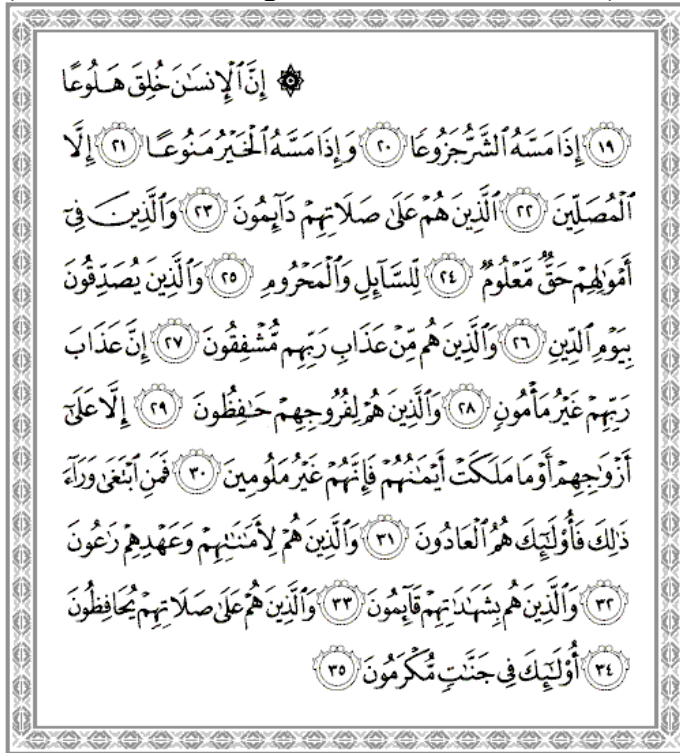 ۞ إِنَّ ٱلْإِنسَٰنَ خُلِقَ هَلُوعًا
﴿١٩﴾ إِذَا مَسَّهُ ٱلشَّرُّ جَزُوعًا ﴿٢٠﴾ وَإِذَا مَسَّهُ ٱلْخَيْرُ مَنُوعًا ﴿٢١﴾ إِلَّا
ٱلْمُصَلِّينَ ﴿٢٢﴾ ٱلَّذِينَ هُمْ عَلَىٰ صَلَاتِهِمْ دَآئِمُونَ ﴿٢٣﴾ وَٱلَّذِينَ فِىٓ
أَمْوَٰلِهِمْ حَقٌّ مَّعْلُومٌ ﴿٢٤﴾ لِّلسَّآئِلِ وَٱلْمَحْرُومِ ﴿٢٥﴾ وَٱلَّذِينَ يُصَدِّقُونَ
بِيَوْمِ ٱلدِّينِ ﴿٢٦﴾ وَٱلَّذِينَ هُم مِّنْ عَذَابِ رَبِّهِم مُّشْفِقُونَ ﴿٢٧﴾ إِنَّ عَذَابَ
رَبِّهِمْ غَيْرُ مَأْمُونٍ ﴿٢٨﴾ وَٱلَّذِينَ هُمْ لِفُرُوجِهِمْ حَٰفِظُونَ ﴿٢٩﴾ إِلَّا عَلَىٰٓ
أَزْوَٰجِهِمْ أَوْ مَا مَلَكَتْ أَيْمَٰنُهُمْ فَإِنَّهُمْ غَيْرُ مَلُومِينَ ﴿٣٠﴾ فَمَنِ ٱبْتَغَىٰ وَرَآءَ
ذَٰلِكَ فَأُو۟لَٰٓئِكَ هُمُ ٱلْعَادُونَ ﴿٣١﴾ وَٱلَّذِينَ هُمْ لِأَمَٰنَٰتِهِمْ وَعَهْدِهِمْ رَٰعُونَ
﴿٣٢﴾ وَٱلَّذِينَ هُم بِشَهَٰدَٰتِهِمْ قَآئِمُونَ ﴿٣٣﴾ وَٱلَّذِينَ هُمْ عَلَىٰ صَلَاتِهِمْ يُحَافِظُونَ
﴿٣٤﴾ أُو۟لَٰٓئِكَ فِى جَنَّٰتٍ مُّكْرَمُونَ ﴿٣٥﴾